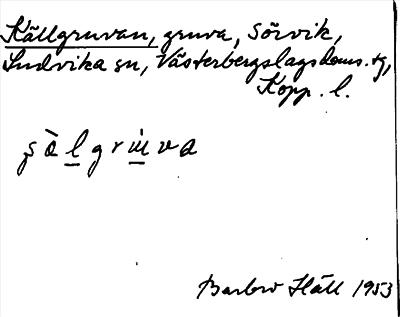 Källgruvan, gruva, Sörvik,
Ludvika sn, Västerbergslags doms. tg,
Kopp. l.
ʂὰlgrùva
Barbro Häll 1953